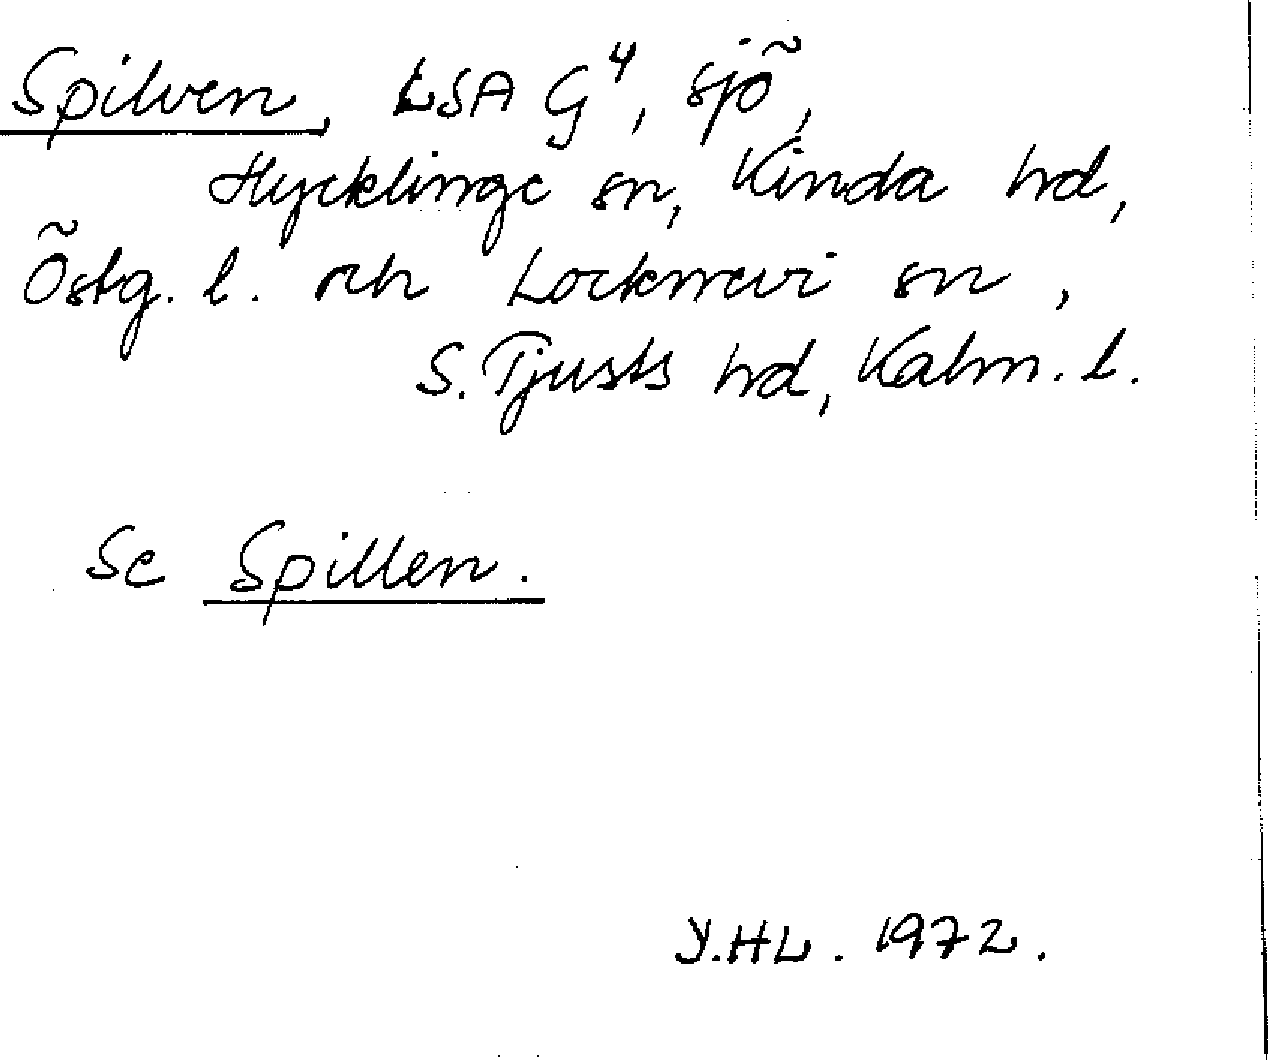 Spilven, LSA G⁴, sjö,
Hycklinge sn, Kinda hd,
Östg. l. och Locknevi sn,
S. Tjusts hd, Kalm. l.
Se Spillen.
Y.HL. 1972.